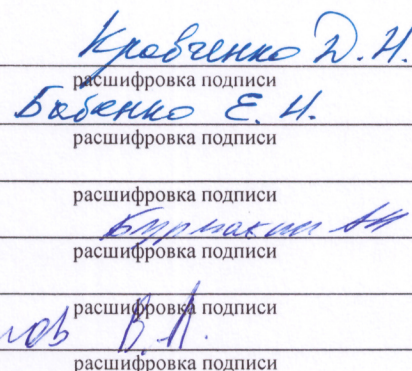 Кравченко Д. Н.
расшифровка подписи
Бабенко Е. Н.
расшифровка подписи
расшифровка подписи
расшифровка подписи
расшифровка подписи
В. А.
расшифровка подписи